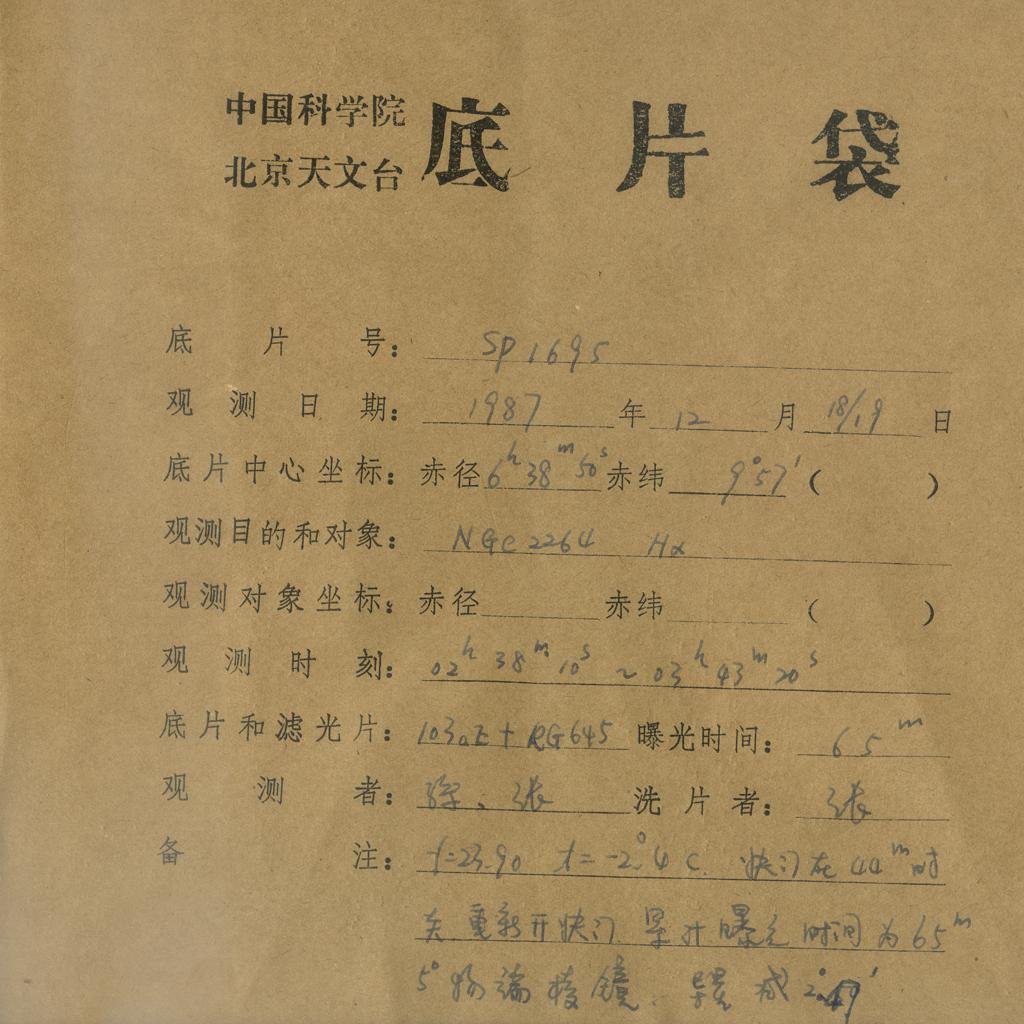 中国科学院
北京天文台
底片袋
底片号： SP1695
观测日期： 1987年12月18/19日
底片中心坐标：赤径6ʰ38ᵐ50ˢ赤纬 9°57′（ ）
观测目的和对象： NGC2264 Hα
观测对象坐标：赤径 赤纬 （ ）
观测时刻： 02ʰ38ᵐ10ˢ～03ʰ43ᵐ20ˢ
底片和滤光片： 103aE+RG645 曝光时间： 65ᵐ
观测者： 、张 洗片者： 张
备注： f=23.90 t=-2°.4C. 快门在44ᵐ时
关.重新开快门.累计曝光时间为65ᵐ
5°物端棱镜.导 成2°